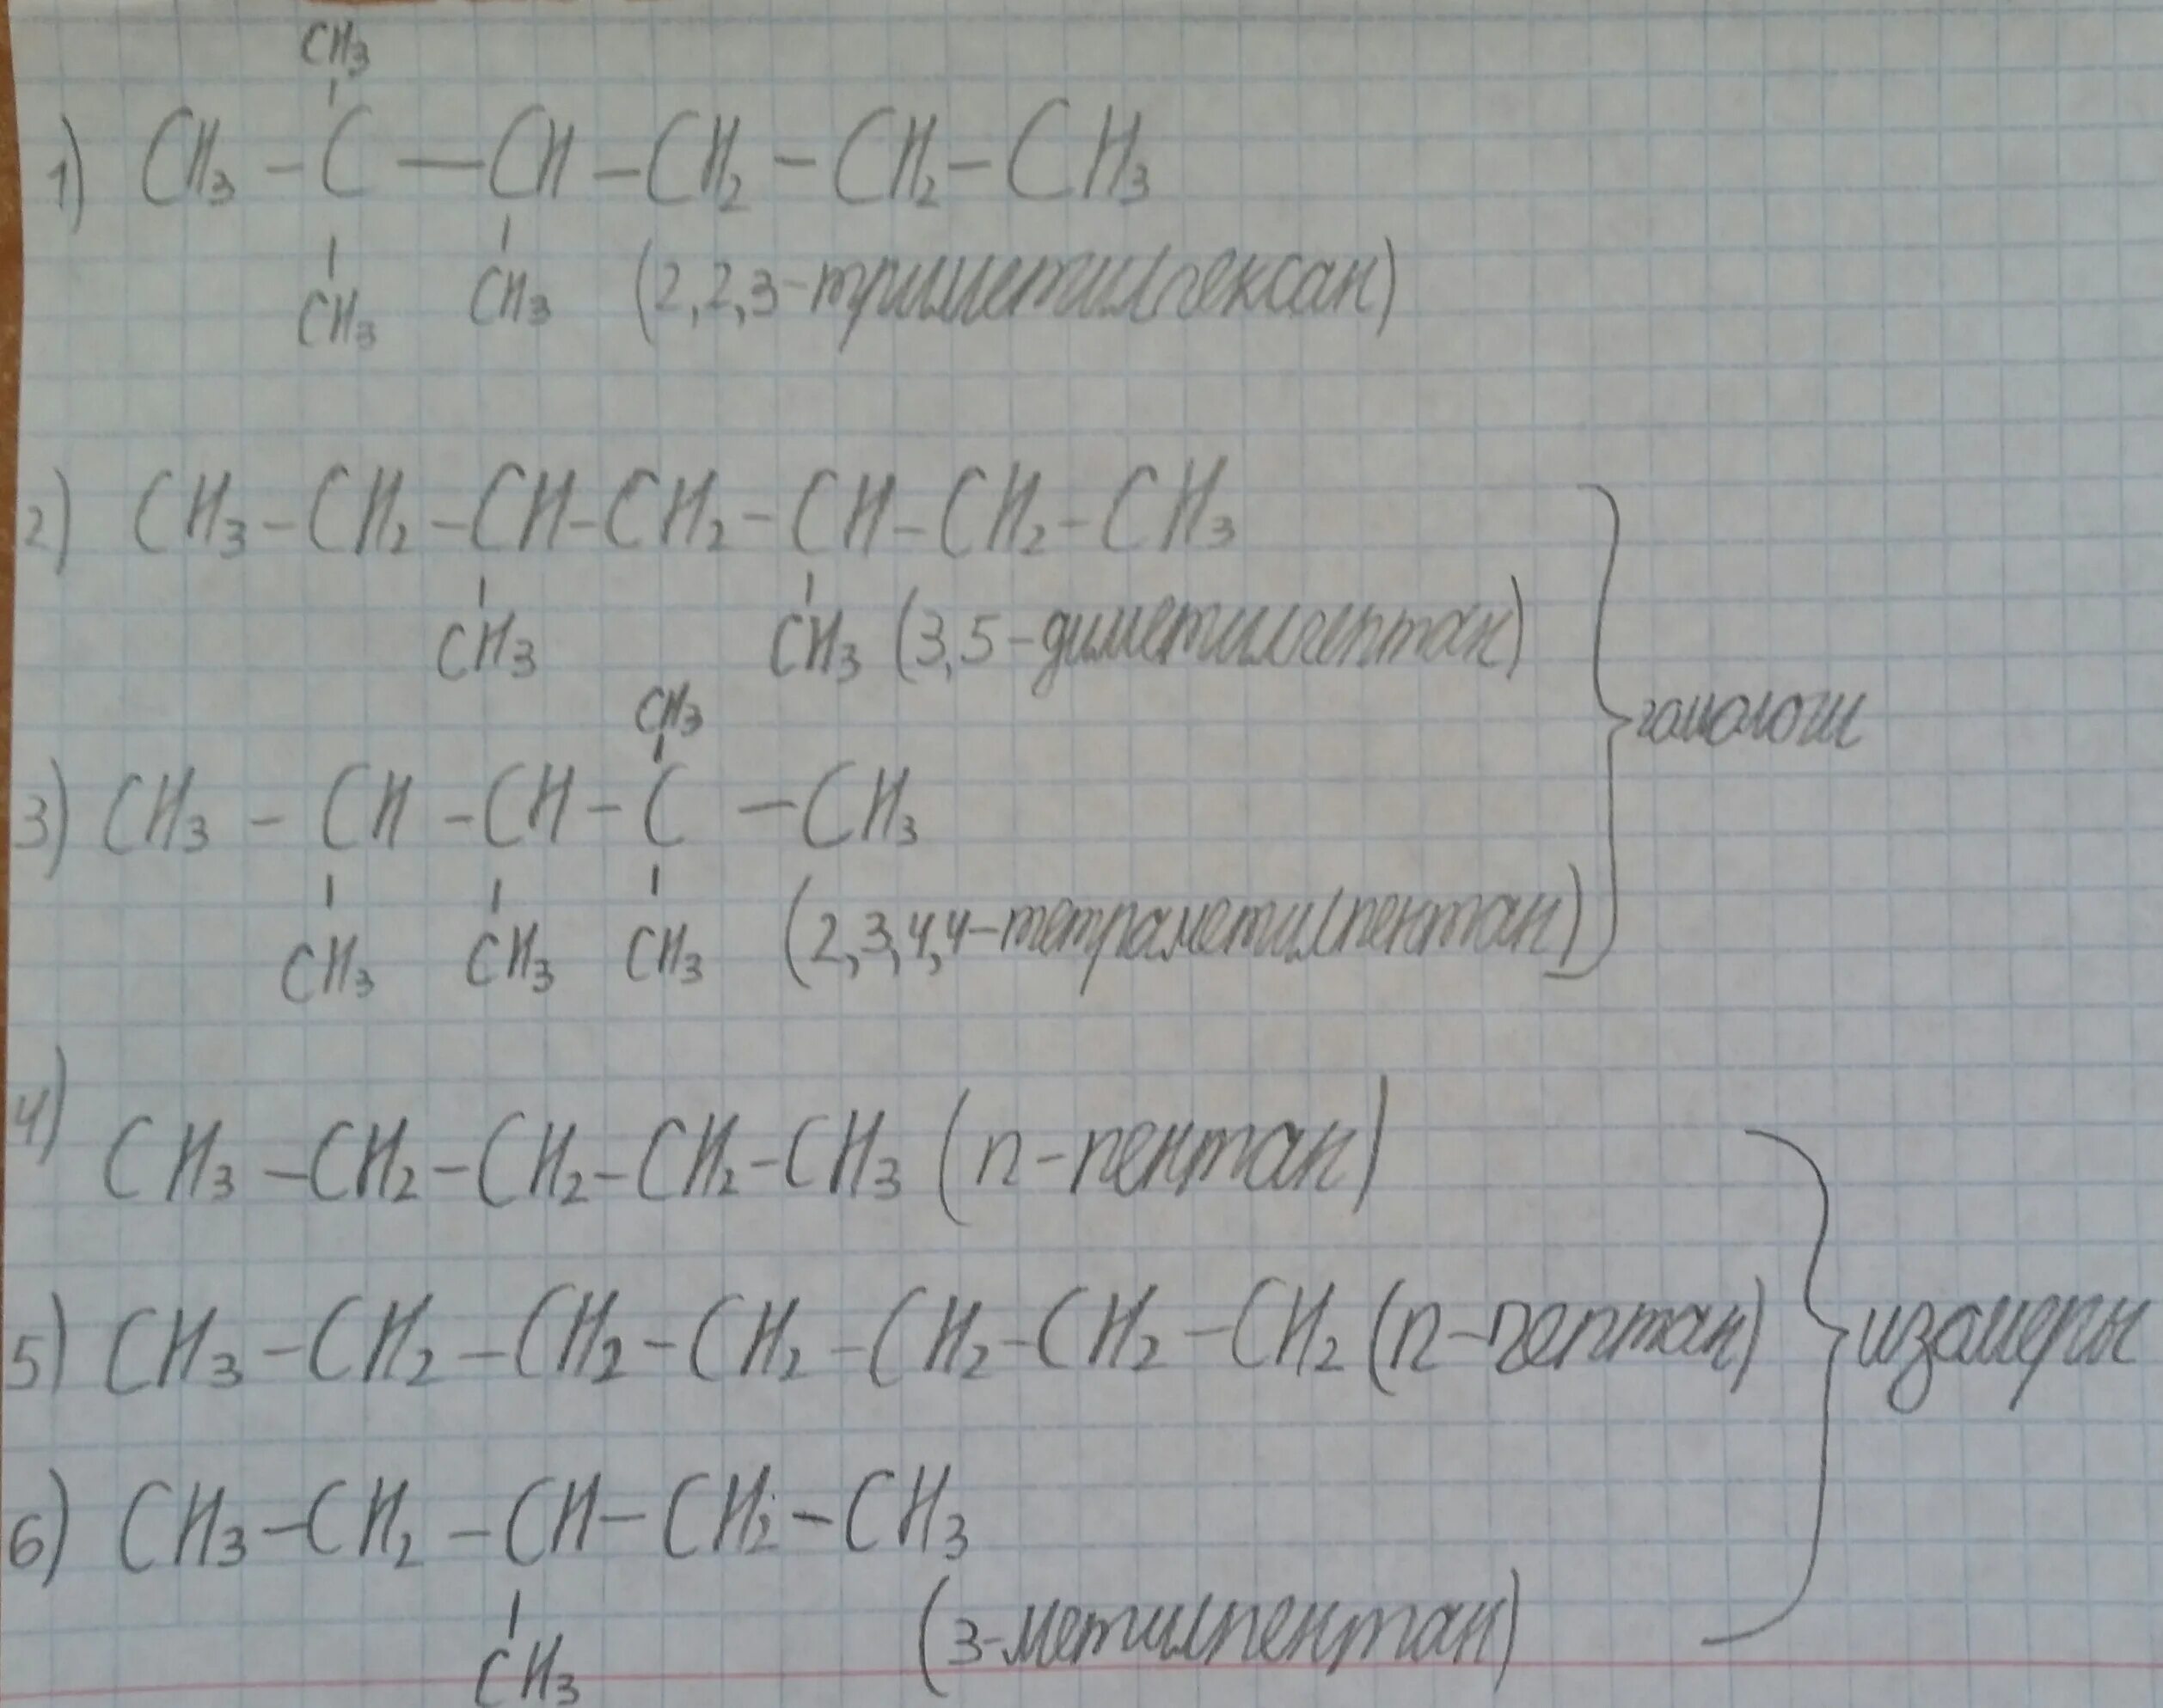 CH3
1) CH3 - C — CH - CH2 - CH2 - CH3
CH3 CH3 (2,2,3-триметилгексан)
2) CH3 - CH2 - CH - CH2 - CH - CH2 - CH3
CH3 CH3 (3,5-диметилгептан)
гомологи
CH3
3) CH3 - CH - CH - C - CH3
CH3 CH3 CH3 (2,3,4,4-тетраметилпентан)
4) CH3 - CH2 - CH2 - CH2 - CH3 (n-пентан)
5) CH3 - CH2 - CH2 - CH2 - CH2 - CH2 - CH2 (n-гептан)
изомеры
6) CH3 - CH2 - CH - CH2 - CH3
CH3 (3-метилпентан)